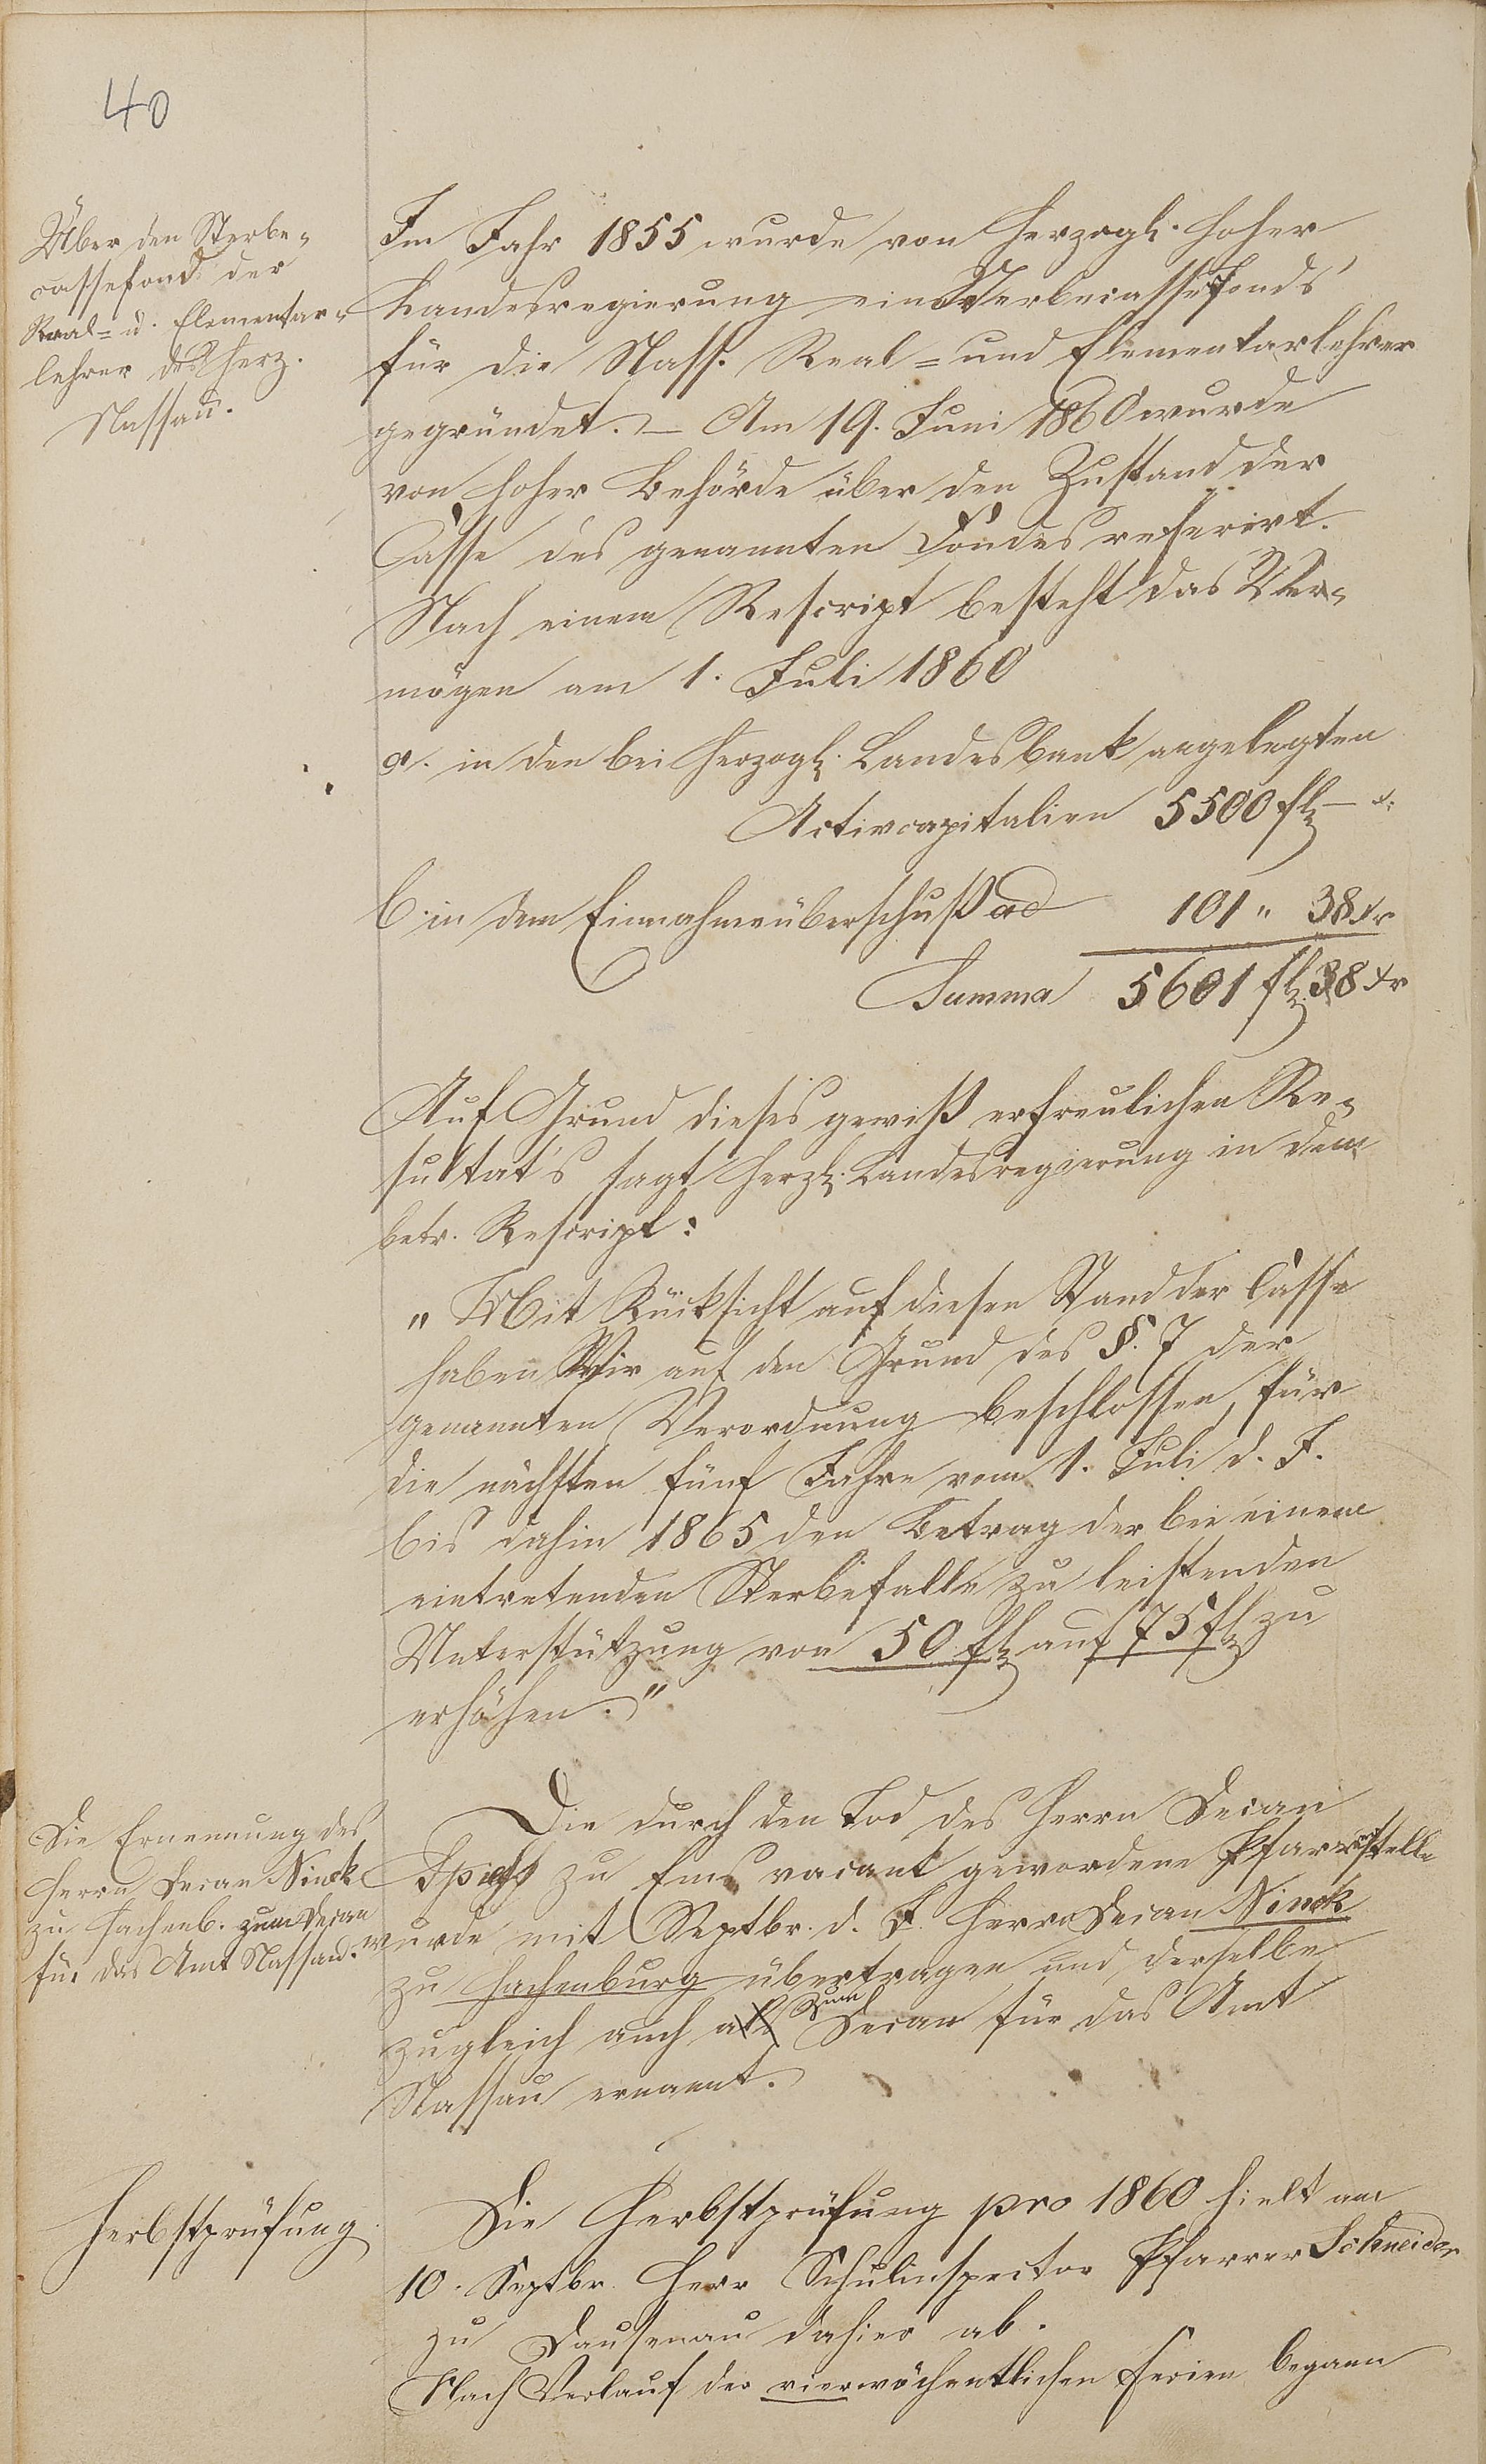 40
Über den Sterbe-
cassefond der
Real- u. Elementar-
lehrer des Herz.
Nassau.
Im Jahr 1855 wurde von Herzogl. hoher
Landesregierung ein Sterbecassefonds
für die Nass. Real- und Elementarlehrer
gegründet. – Am 19. Juni 1860 wurde
von hoher Behörde über den Zustand der
Casse des genannten Fondes referirt.
Nach einem Rescript besteht das Ver-
mögen am 1. Juli 1860
a. in den bei Herzogl. Landesbank angelegten
Activcapitalien 5500 fl – x.
b. in dem Einnahmeüberschuß ad 101 " 38 xr
Summa 5601 fl. 38 xr
Auf Grund dieses gewiß erfreulichen Re-
sultat's sagt Herzl. Landesregierung in dem
betr. Rescript:
„Mit Rücksicht auf diesen Stand der Casse
haben Wir auf den Grund des §. 7 der
genannten Verordnung beschlossen, für
die nächsten fünf Jahre vom 1. Juli d. J.
bis dahin 1865 den Betrag der bei einem
eintretenden Sterbefalle zu leistenden
Unterstützung von 50 fl auf 75 fl zu
erhöhen."
Die Ernennung des
Herrn Decan Ninck
zu Hachenb. zum Decan
für das Amt Nassau.
Die durch den Tod des Herrn Decan
Spieß zu Ems vacant gewordene Pfarrerstelle
wurde mit Septbr. d. J. Herrn Decan Ninck
zu Hachenburg übertragen und derselbe
zugleich auch als zum Decan für das Amt
Nassau ernannt.
Herbstprüfung.
Die Herbstprüfung pro 1860 hielt am
10. Septbr. Herr Schulinspector Pfarrer Schneider
zu Dausenau dahier ab.
Nach Verlauf der vierwöchentlichen Ferien begann